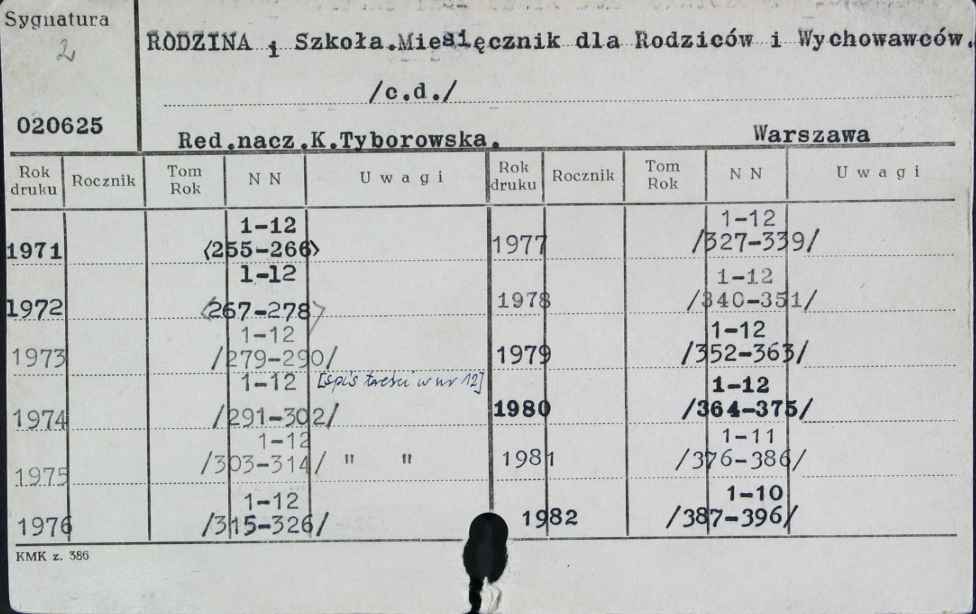 Sygnatura
2
RODZINA i Szkoła.Miesięcznik dla Rodziców i Wychowawców.
/c.d./
020625
Red.nacz.K.Tyborowska. Warszawa
Rok druku Rocznik Tom Rok NN Uwagi Rok druku Rocznik Tom Rok NN Uwagi
1-12 1-12
1971 <255-266> 1977 /327-339/
1-12 1-12
1972 <267-278> 1978 /340-351/
1-12 1-12
1973 /279-290/ 1979 /352-363/
1-12 [spis treści w nr 12] 1-12
1974 /291-302/ 1980 /364-375/
1-12 1-11
1975 /303-314/ " " 1981 /376-386/
1-12 1-10
1976 /315-326/ 1982 /387-396/
KMK z. 386